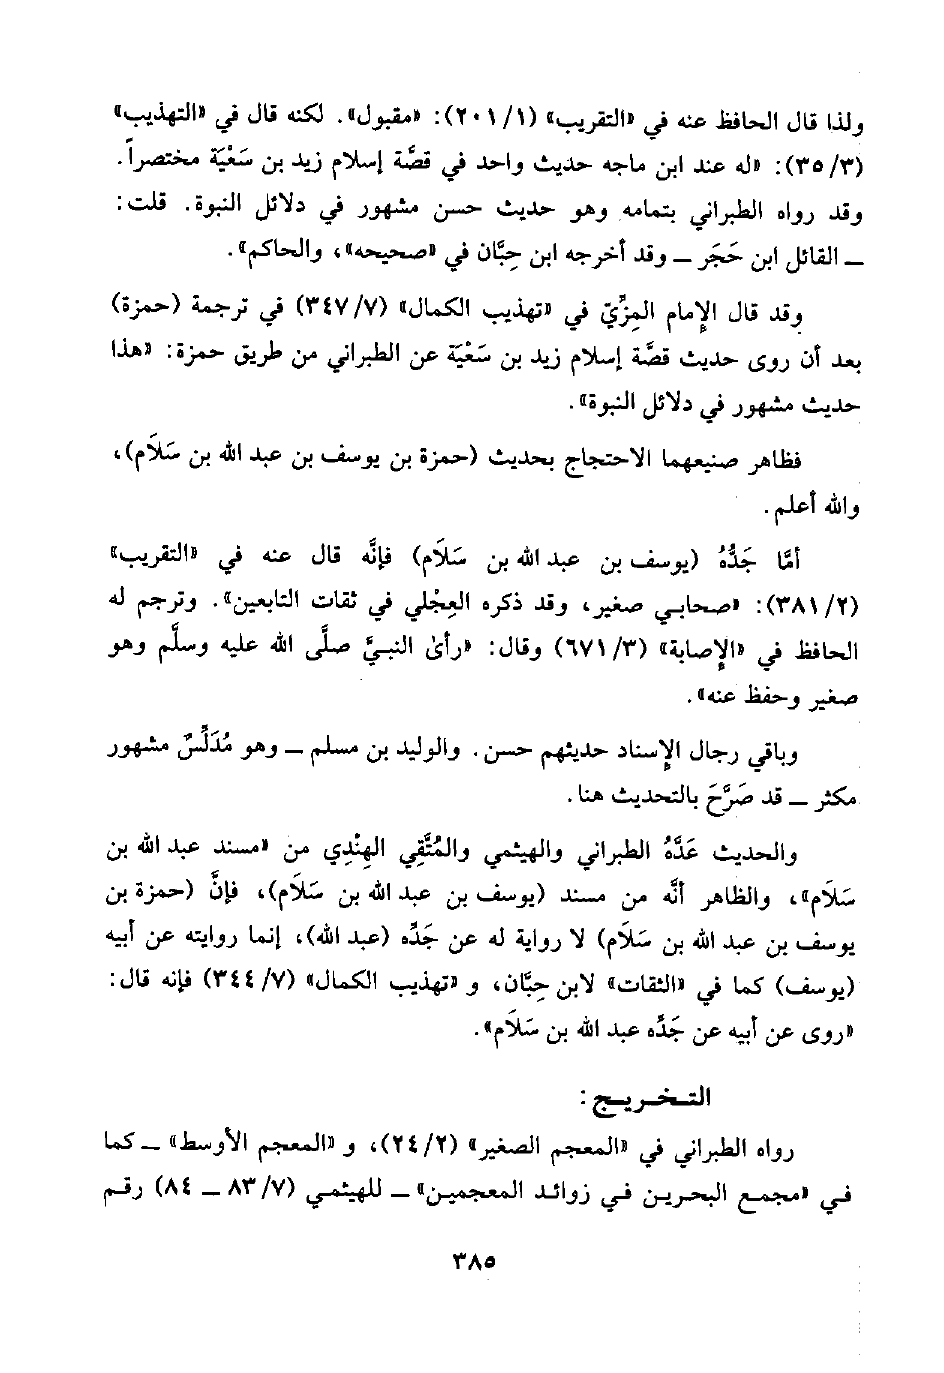 ولذا قال الحافظ عنه في «التقريب» (٢٠١/١): «مقبول». لكنه قال في «التهذيب»
(٣٥/٣): «له عند ابن ماجه حديث واحد في قصَّة إسلام زيد بن سَعْيَة مختصراً.
وقد رواه الطبراني بتمامه وهو حديث حسن مشهور في دلائل النبوة. قلت:
ــ القائل ابن حَجَر ــ وقد أخرجه ابن حِبَّان في «صحيحه»، والحاكم».
وقد قال الإمام المِزِّيّ في «تهذيب الكمال» (٣٤٧/٧) في ترجمة (حمزة)
بعد أن روى حديث قصَّة إسلام زيد بن سَعْيَة عن الطبراني من طريق حمزة: «هذا
حديث مشهور في دلائل النبوة».
فظاهر صنيعهما الاحتجاج بحديث (حمزة بن يوسف بن عبد الله بن سَلَام)،
والله أعلم.
أمَّا جَدُّهُ (يوسف بن عبد الله بن سَلَام) فإنَّه قال عنه في «التقريب»
(٣٨١/٢): «صحابي صغير، وقد ذكره العِجْلي في ثقات التابعين». وترجم له
الحافظ في «الإصابة» (٦٧١/٣) وقال: «رأىٰ النبيَّ صلَّى الله عليه وسلَّم وهو
صغير وحفظ عنه».
وباقي رجال الإسناد حديثهم حسن. والوليد بن مسلم ــ وهو مُدَلِّسٌ مشهور
مكثر ــ قد صَرَّحَ بالتحديث هنا.
والحديث عَدَّهُ الطبراني والهيثمي والمُتَّقِي الهِنْدِي من «مسند عبد الله بن
سَلَام»، والظاهر أنَّه من مسند (يوسف بن عبد الله بن سَلَام)، فإنَّ (حمزة بن
يوسف بن عبد الله بن سَلَام) لا رواية له عن جَدِّه (عبد الله)، إنما روايته عن أبيه
(يوسف) كما في «الثقات» لابن حِبَّان، و «تهذيب الكمال» (٣٤٤/٧) فإنه قال:
«روى عن أبيه عن جَدِّه عبد الله بن سَلَام».
التخريج:
رواه الطبراني في «المعجم الصغير» (٢٤/٢)، و «المعجم الأوسط» ــ كما
في «مجمع البحرين في زوائد المعجمين» ــ للهيثمي (٨٣/٧ ــ ٨٤) رقم
٣٨٥